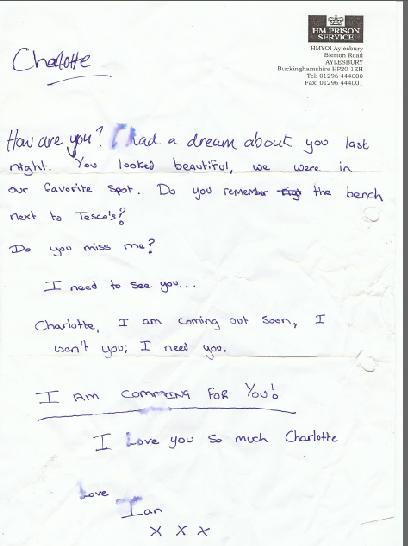 HM PRISON
SERVICE
HMYOI Aylesbury
Bierton Road
AYLESBURY
Buckinghamshire HP20 1EH
Tel: 01296 444000
Fax: 01296 44400
Charlotte
How are you? I had a dream about you last
night. You looked beautiful, we were in
our favorite spot. Do you remember the bench
next to Tesco's?
Do you miss me?
I need to see you...
Charlotte, I am coming out soon, I
want you, I need you.
I AM COMMING FOR YOU!
I Love you so much Charlotte
Love
Ian
X X X